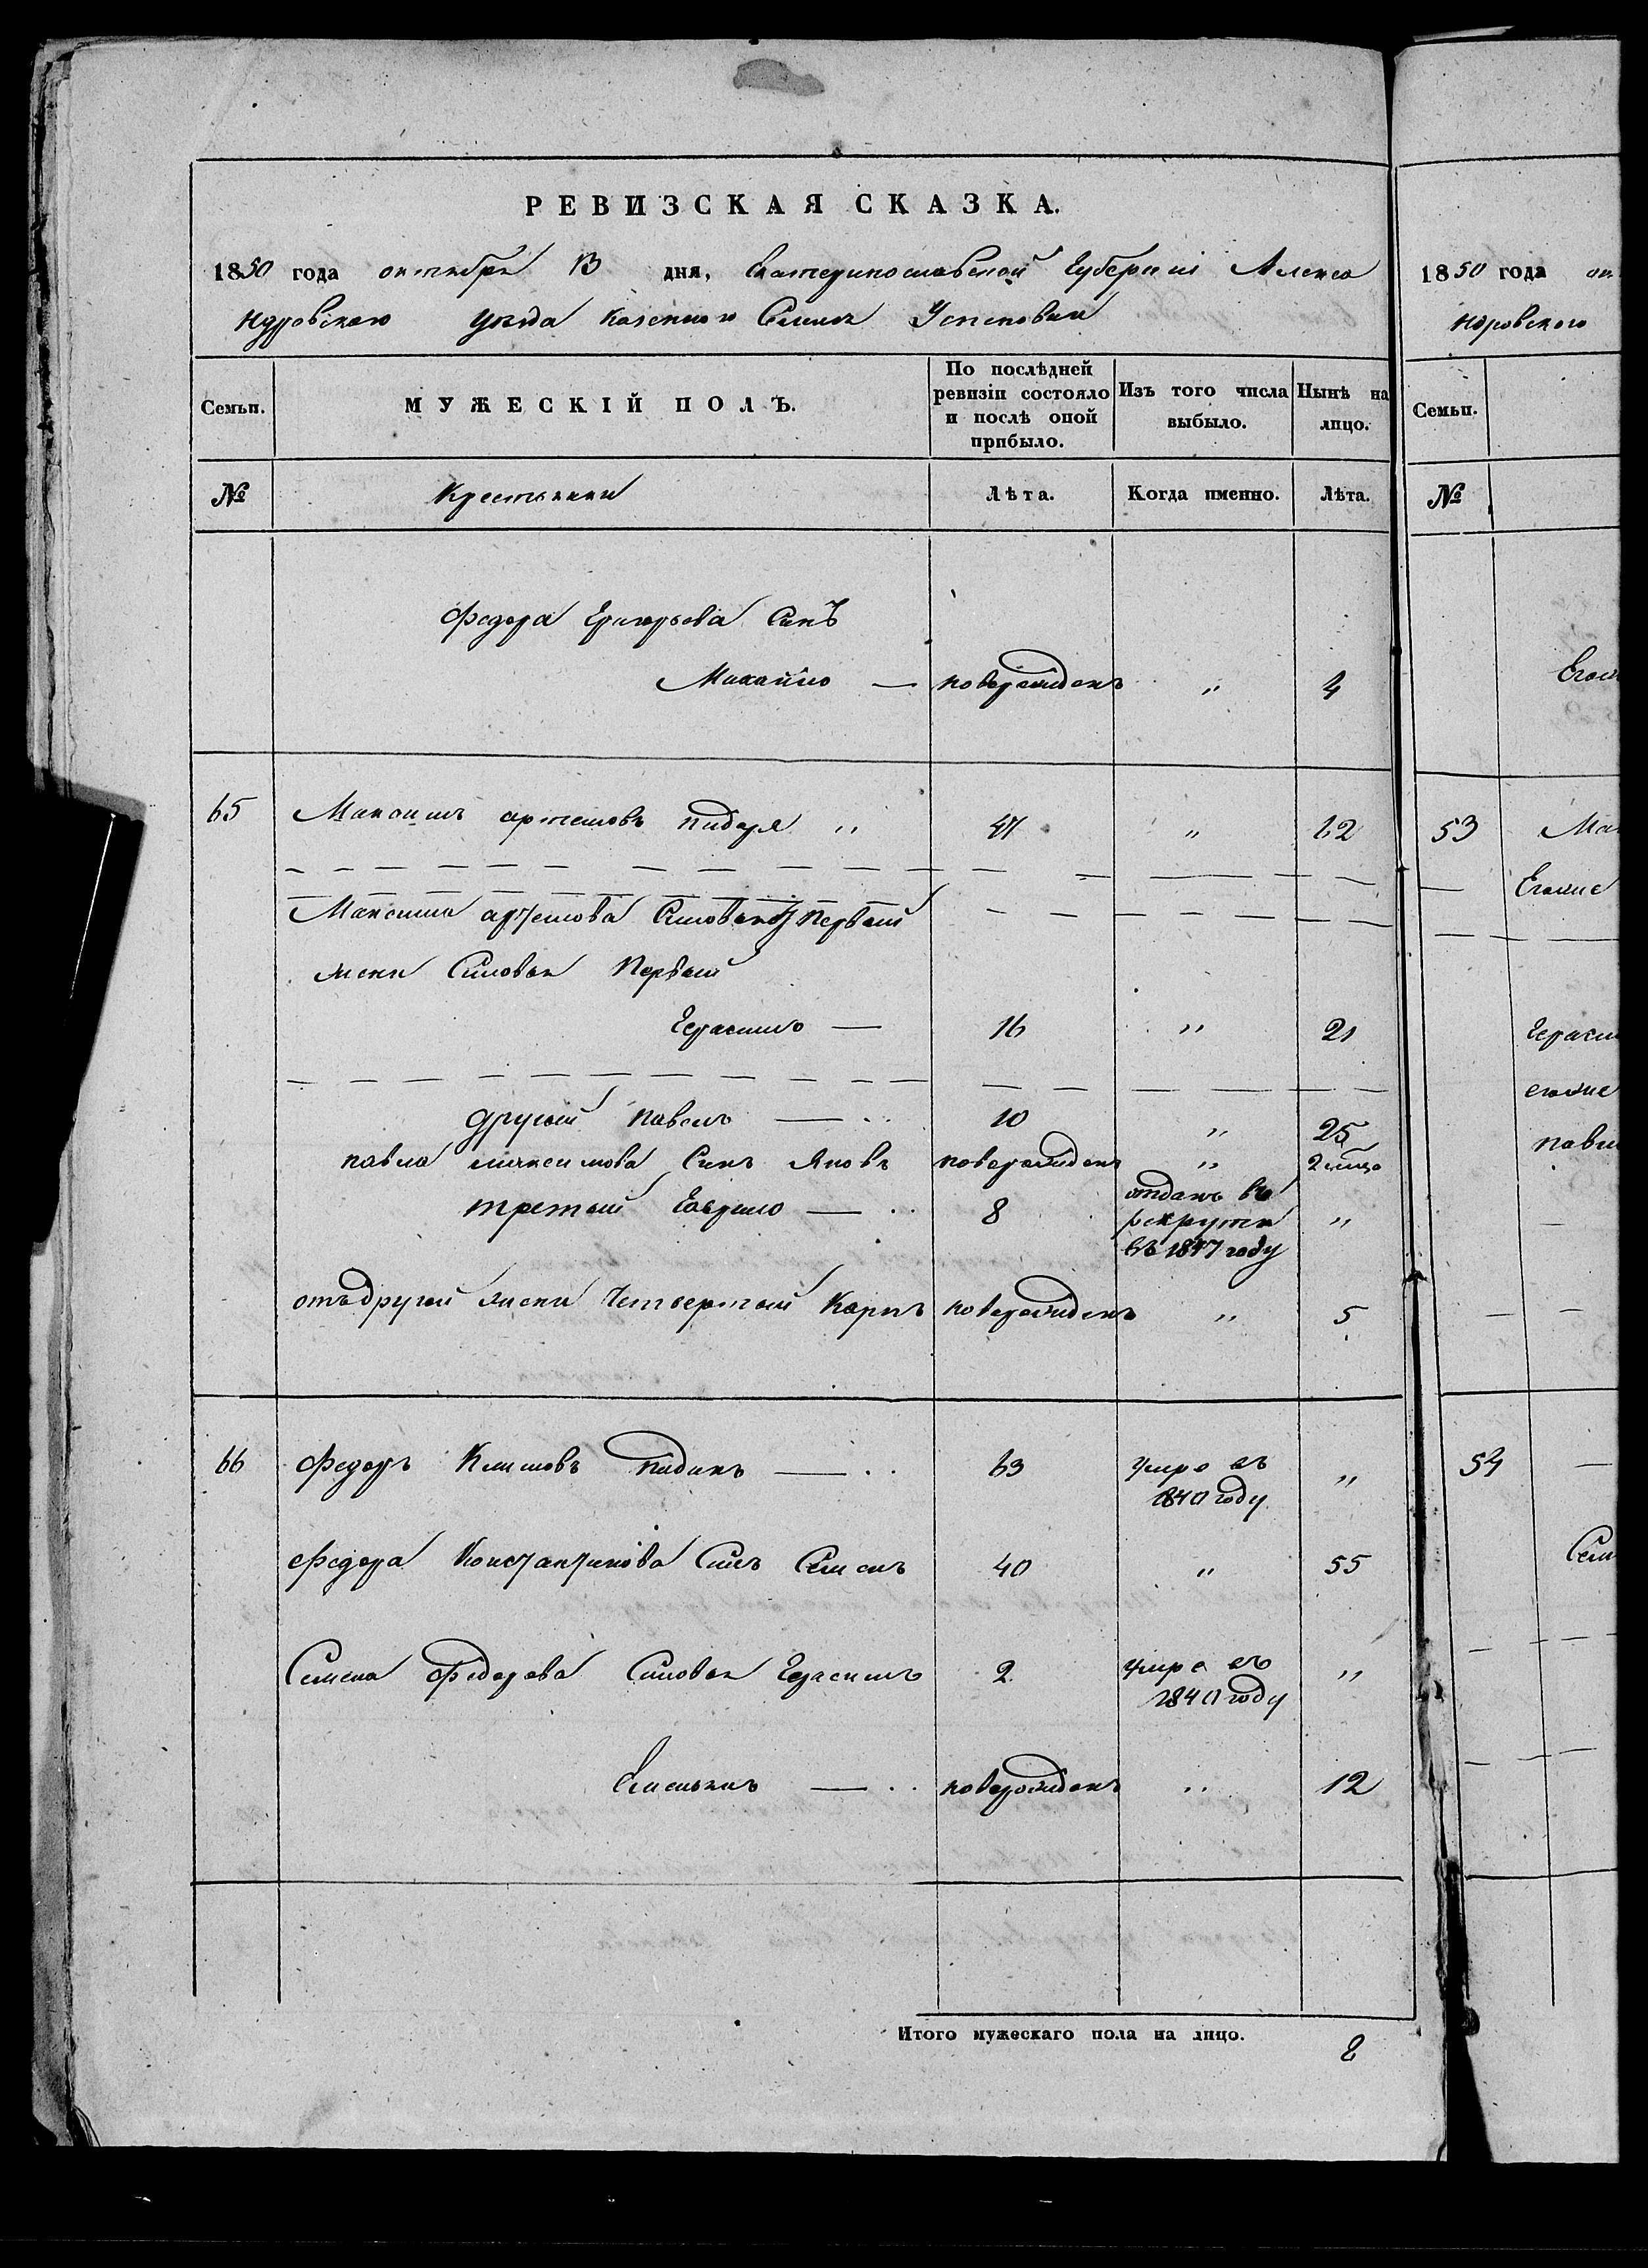 РЕВИЗСКАЯ СКАЗКА.
1850 года октября 13 дня, Екатеринославской Губерніи Алекса
ндровскаго уезда казенного Селенія
Семьи.
МУЖЕСКІЙ ПОЛЪ.
По послѣдней ревизіи состояло и послѣ оной прибыло.
Изъ того числа выбыло.
Нынѣ на лицо.
№
Крестьяни
Лѣта.
Когда именно.
Лѣта.
Федора Григорьева Синъ
Михайло — новорожденъ " 4
65 Максимъ артемовъ " 47 " 62
Максима артемова Синовья Первой
жени Синовья Первый
Герасимъ — 16 " 21
другой павелъ — 10 " 25
павла максимова Синъ Яковъ новорожденъ "
третий Гаврило — 8 отданъ въ "
рекрути
въ 1847 году
отъ другой жени Четвертый Карпъ новорожденъ " 5
66 Федоръ Климовъ — 63 умре въ "
1840 году
Федора Константинова Синъ Семенъ 40 " 55
Семена Федорова Синовья Герасимъ 2 умре въ "
1840 году
Емельянъ — новорожденъ " 12
Итого мужескаго пола на лицо. 8
1850 года
ндровского
Семьи.
№
53
54